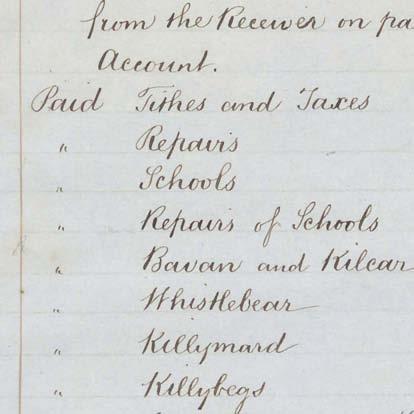 from the Receiver on pa
Account.
Paid Tithes and Taxes
" Repairs
" Schools
" Repairs of Schools
" Bavan and Kilcar
" Whistlebear
" Killymard
" Killybegs